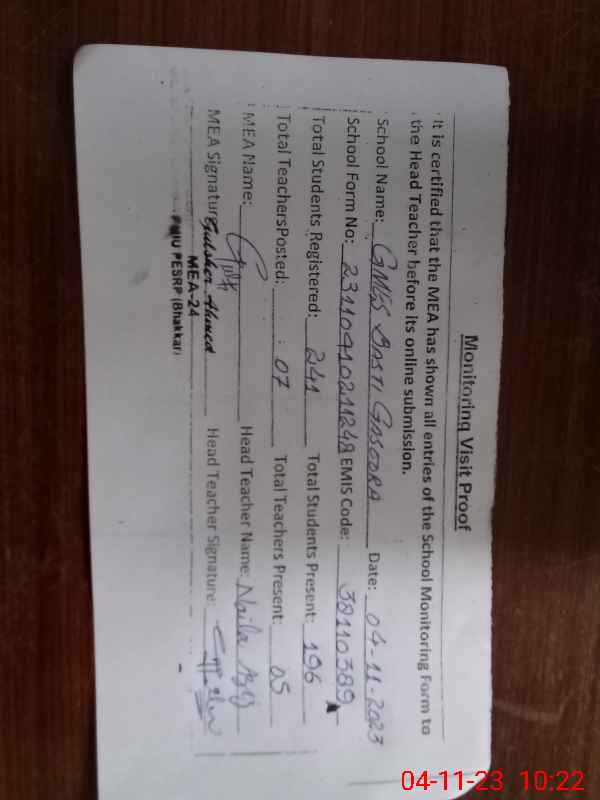 Monitoring Visit Proof
It is certified that the MEA has shown all entries of the School Monitoring Form to
the Head Teacher before its online submission.
School Name: GMES BASTI GASOORA Date: 04-11-2023
School Form No: 23110910211248 EMIS Code: 38110389
Total Students Registered: 241 Total Students Present: 196
Total TeachersPosted: 07 Total Teachers Present: 05
MEA Name: Head Teacher Name: Naila
MEA Signature: Gulsher Ahmed Head Teacher Signature:
MEA-24
PMIU PESRP (Bhakkar)
04-11-23 10:22